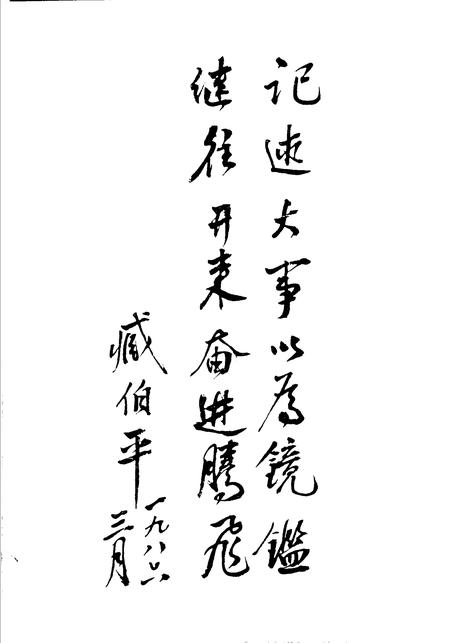 记述大事以为镜鉴
继往开来奋进腾飞
臧伯平
一九八六
三月